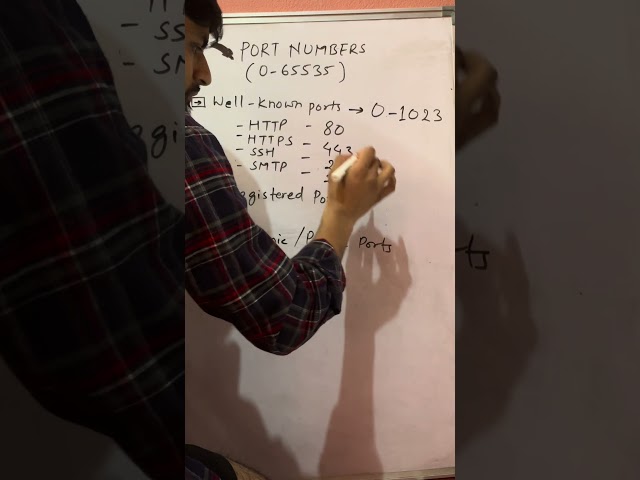 PORT NUMBERS
(0-65535)
→ Well-Known ports → 0-1023
- HTTP - 80
- HTTPS - 443
- SSH - 2
- SMTP -
gistered Po
ic / P Ports